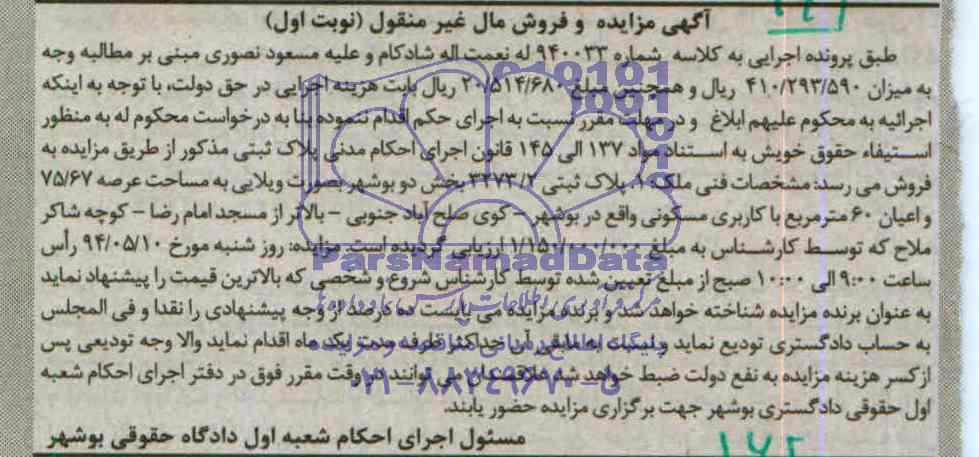 آگهی مزایده و فروش مال غیر منقول (نوبت اول)
طبق پرونده اجرایی به کلاسه شماره ۹۴۰۰۳۳ له نعمت اله شادکام و علیه مسعود نصوری مبنی بر مطالبه وجه
به میزان ۴۱۰/۲۹۳/۵۹۰ ریال و همچنین مبلغ ۲۰/۵۱۴/۶۸۰ ریال بابت هزینه اجرایی در حق دولت، با توجه به اینکه
اجرائیه به محکوم علیهم ابلاغ و در مهلت مقرر نسبت به اجرای حکم اقدام ننموده بنا به درخواست محکوم له به منظور
استیفاء حقوق خویش به استناد مواد ۱۳۷ الی ۱۴۵ قانون اجرای احکام مدنی پلاک ثبتی مذکور از طریق مزایده به
فروش می رسد: مشخصات فنی ملک: ۱. پلاک ثبتی ۳۲۷۳/۲ بخش دو بوشهر بصورت ویلایی به مساحت عرصه ۷۵/۶۷
و اعیان ۶۰ مترمربع با کاربری مسکونی واقع در بوشهر - کوی صلح آباد جنوبی - بالاتر از مسجد امام رضا - کوچه شاکر
ملاح که توسط کارشناس به مبلغ ۱/۱۵۰/۰۰۰/۰۰۰ ارزیابی گردیده است. مزایده: روز شنبه مورخ ۹۴/۰۵/۱۰ رأس
ساعت ۹:۰۰ الی ۱۰:۰۰ صبح از مبلغ تعیین شده توسط کارشناس شروع و شخصی که بالاترین قیمت را پیشنهاد نماید
به عنوان برنده مزایده شناخته خواهد شد و برنده مزایده می بایست ده درصد از وجه پیشنهادی را نقدا و فی المجلس
به حساب دادگستری تودیع نماید و نسبت به مابقی آن حداکثر ظرف مدت یک ماه اقدام نماید والا وجه تودیعی پس
از کسر هزینه مزایده به نفع دولت ضبط خواهد شد علاقمندان می توانند در وقت مقرر فوق در دفتر اجرای احکام شعبه
اول حقوقی دادگستری بوشهر جهت برگزاری مزایده حضور یابند.
مسئول اجرای احکام شعبه اول دادگاه حقوقی بوشهر
ParsNamadData
۰۲۱-۸۸۳۴۹۶۷۰-۵